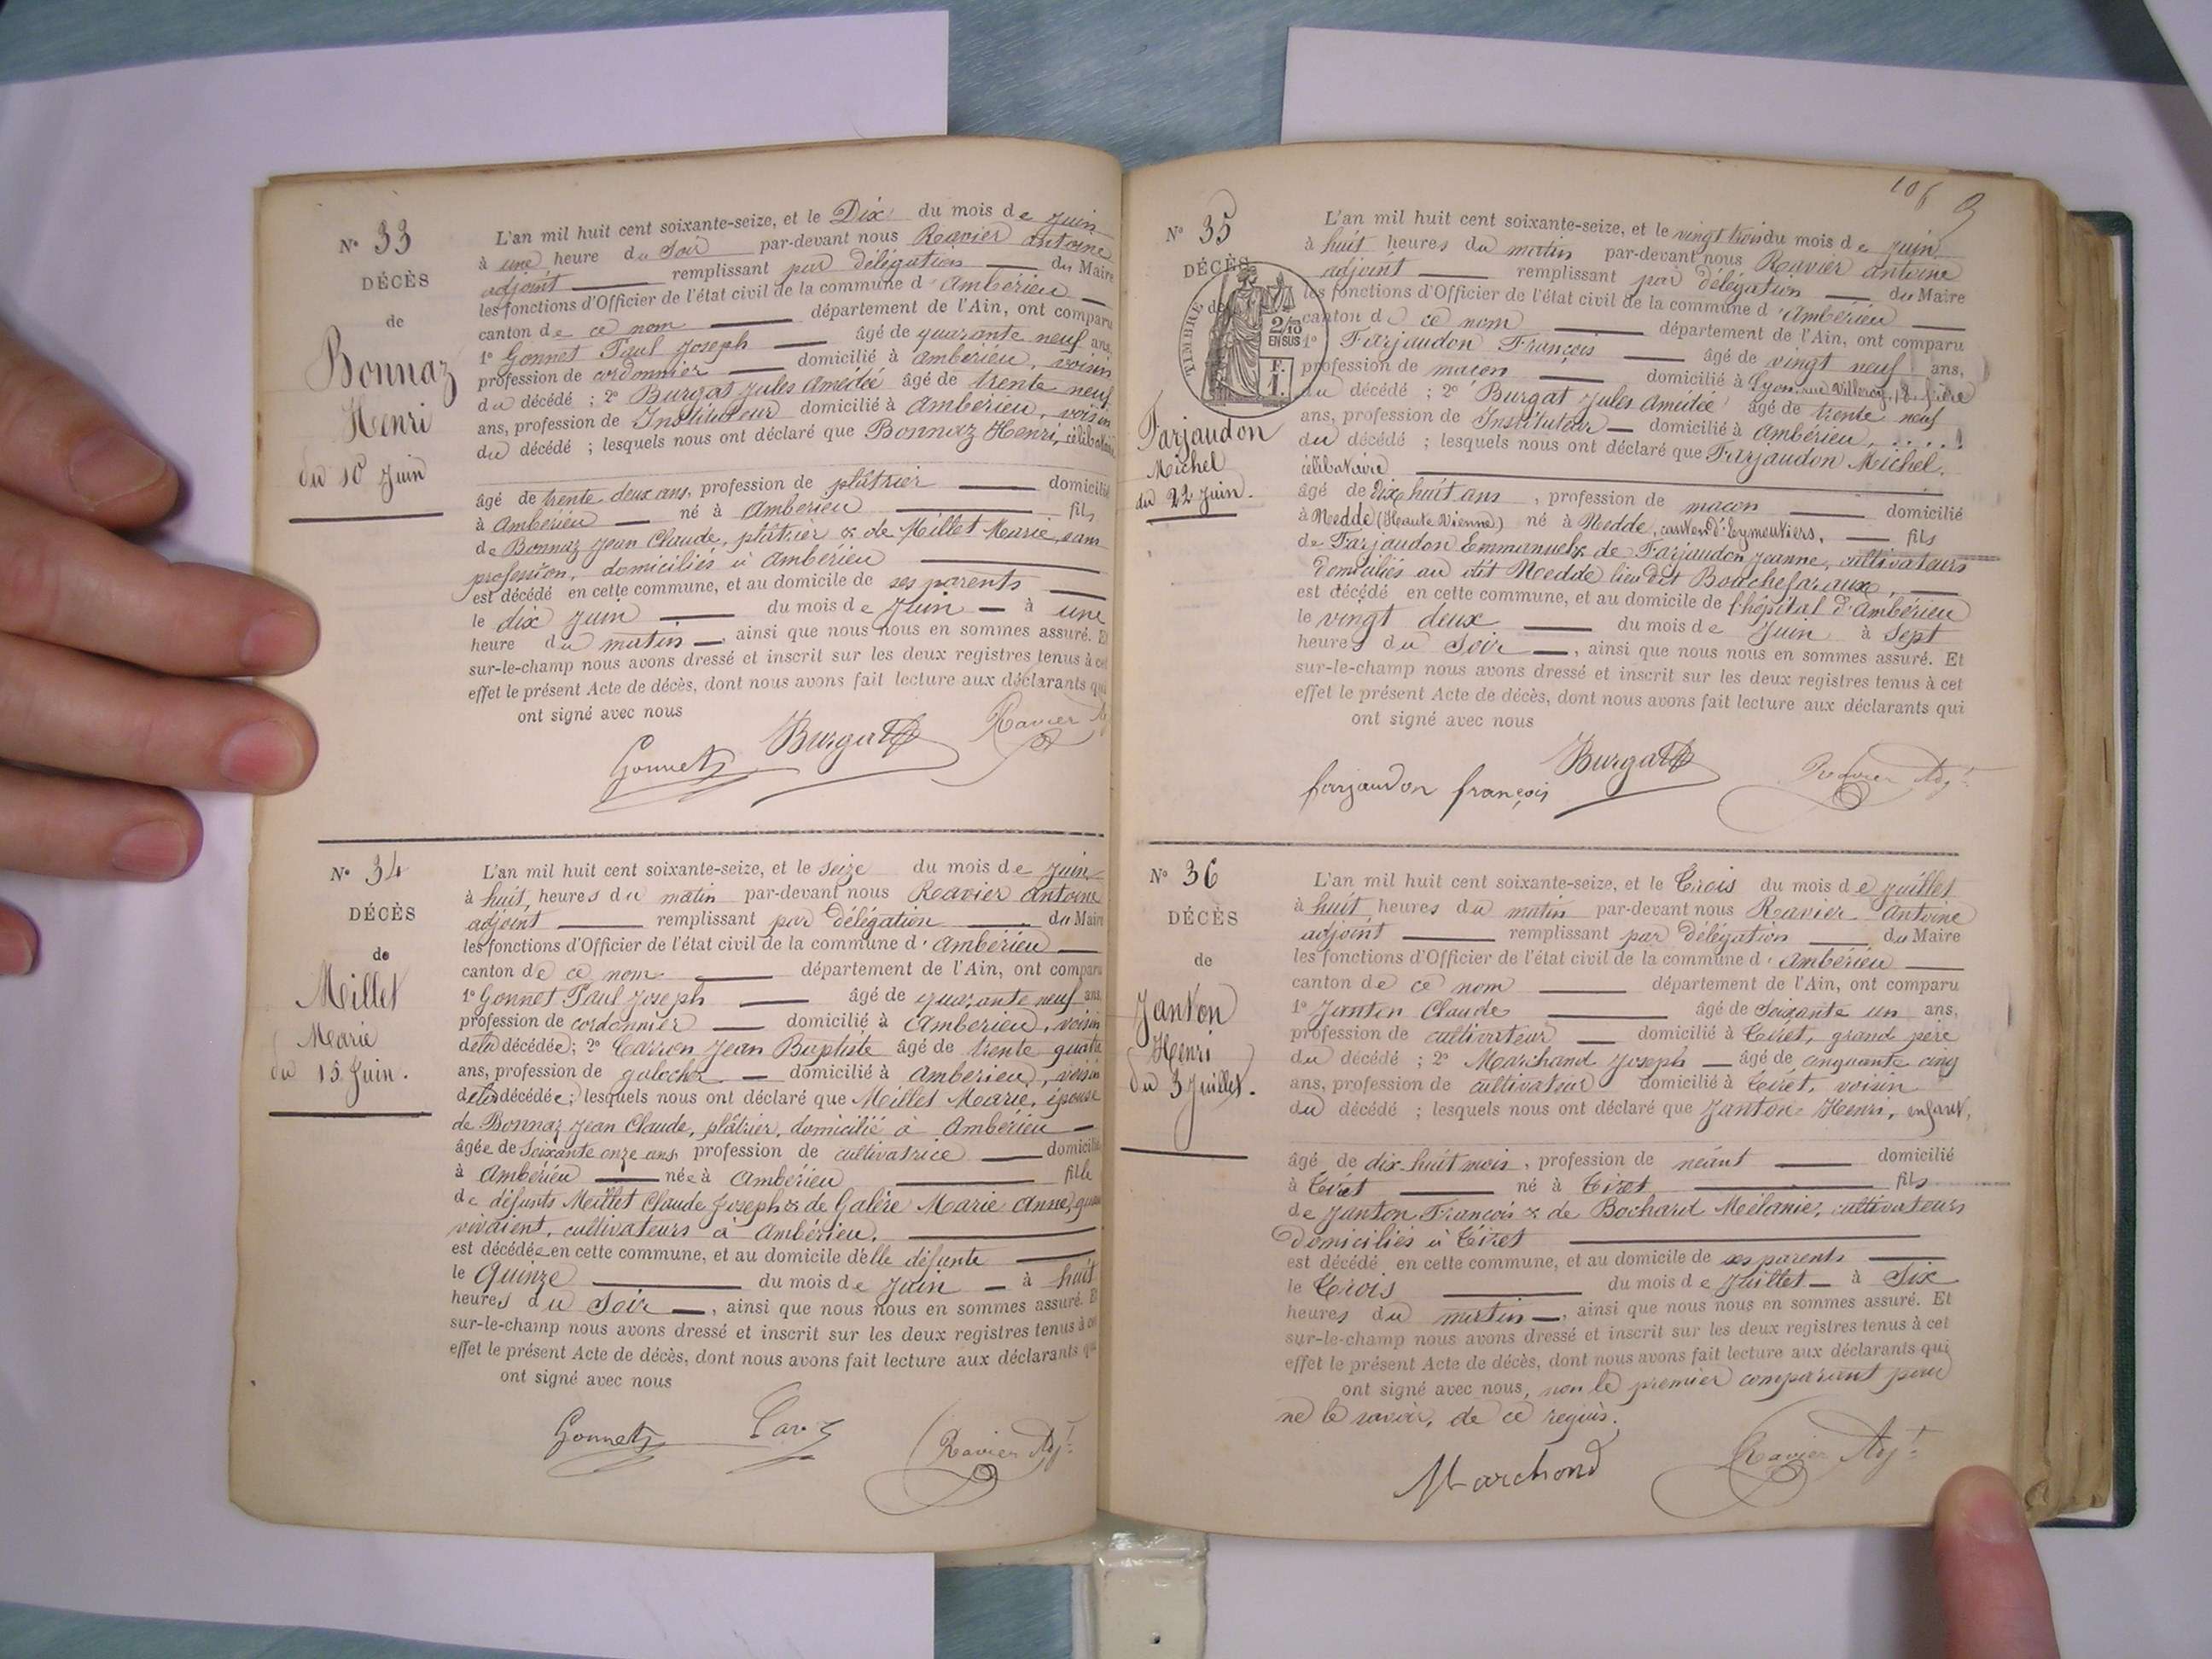 N° 33
DÉCÈS
de
Bonnaz
Henri
du 10 Juin
L'an mil huit cent soixante-seize, et le Dix du mois de Juin
à une heure du Soir par-devant nous Ravier Antoine
adjoint remplissant par délégation du Maire
les fonctions d'Officier de l'état civil de la commune d'Ambérieu
canton de ce nom département de l'Ain, ont comparu
1° Gonnet Paul Joseph âgé de quarante neuf ans,
profession de cordonnier domicilié à Ambérieu, voisin
du décédé ; 2° Burgat Jules Amédée âgé de trente neuf
ans, profession de Instituteur domicilié à Ambérieu, voisin
du décédé ; lesquels nous ont déclaré que Bonnaz Henri, célibataire
âgé de trente deux ans, profession de plâtrier domicilié
à Ambérieu né à Ambérieu fils
de Bonnaz Jean Claude, plâtrier & de Millet Marie, sans
profession, domiciliés à Ambérieu
est décédé en cette commune, et au domicile de ses parents
le dix Juin du mois de Juin à une
heure du matin, ainsi que nous nous en sommes assuré. Et
sur-le-champ nous avons dressé et inscrit sur les deux registres tenus à cet
effet le présent Acte de décès, dont nous avons fait lecture aux déclarants qui
ont signé avec nous
Gonnet Burgat Ravier
N° 34
DÉCÈS
de
Millet
Marie
du 15 Juin.
L'an mil huit cent soixante-seize, et le Seize du mois de Juin
à huit heures du matin par-devant nous Ravier Antoine
adjoint remplissant par délégation du Maire
les fonctions d'Officier de l'état civil de la commune d'Ambérieu
canton de ce nom département de l'Ain, ont comparu
1° Gonnet Paul Joseph âgé de quarante neuf ans
profession de cordonnier domicilié à Ambérieu, voisin
de la décédée; 2° Carron Jean Baptiste âgé de trente quatre
ans, profession de domicilié à Ambérieu, voisin
de la décédée; lesquels nous ont déclaré que Millet Marie, épouse
de Bonnaz Jean Claude, plâtrier, domicilié à Ambérieu
âgée de Soixante onze ans, profession de cultivatrice domicilié
à Ambérieu née à Ambérieu fille
de défunts Millet Claude Joseph & de Galère Marie Anne, quand
vivaient, cultivateurs à Ambérieu.
est décédée en cette commune, et au domicile d'elle défunte
le Quinze du mois de Juin à huit
heures du Soir, ainsi que nous nous en sommes assuré. Et
sur-le-champ nous avons dressé et inscrit sur les deux registres tenus à cet
effet le présent Acte de décès, dont nous avons fait lecture aux déclarants qui
ont signé avec nous
Gonnet Ravier Adjt
106
N° 35
DÉCÈS
de
TIMBRE
2/10
EN SUS
F.
1.
Farjaudon
Michel
du 22 Juin.
L'an mil huit cent soixante-seize, et le vingt trois du mois de Juin
à huit heures du matin par-devant nous Ravier Antoine
adjoint remplissant par délégation du Maire
les fonctions d'Officier de l'état civil de la commune d'Ambérieu
canton de ce nom département de l'Ain, ont comparu
1° Farjaudon François âgé de vingt neuf ans,
profession de maçon domicilié à Lyon, rue Villeroy, 18, frère
du décédé ; 2° Burgat Jules Amédée âgé de trente neuf
ans, profession de Instituteur domicilié à Ambérieu, . . . . .
du décédé ; lesquels nous ont déclaré que Farjaudon Michel,
célibataire
âgé de dix huit ans, profession de maçon domicilié
à Nedde (Haute Vienne) né à Nedde, canton d'Eymoutiers, fils
de Farjaudon Emmanuel & de Farjaudon Jeanne, cultivateurs
domiciliés au dit Nedde lieu dit Bouchefaraux
est décédé en cette commune, et au domicile de l'hôpital d'Ambérieu
le vingt deux du mois de Juin à Sept
heures du Soir, ainsi que nous nous en sommes assuré. Et
sur-le-champ nous avons dressé et inscrit sur les deux registres tenus à cet
effet le présent Acte de décès, dont nous avons fait lecture aux déclarants qui
ont signé avec nous
farjaudon françois Burgat Ravier Adjt
N° 36
DÉCÈS
de
Janton
Henri
du 3 Juillet.
L'an mil huit cent soixante-seize, et le Trois du mois de Juillet
à huit heures du matin par-devant nous Ravier Antoine
adjoint remplissant par délégation du Maire
les fonctions d'Officier de l'état civil de la commune d'Ambérieu
canton de ce nom département de l'Ain, ont comparu
1° Janton Claude âgé de Soixante un ans,
profession de cultivateur domicilié à Tiret, grand père
du décédé ; 2° Marchand Joseph âgé de cinquante cinq
ans, profession de cultivateur domicilié à Tiret, voisin
du décédé ; lesquels nous ont déclaré que Janton Henri, enfant,
âgé de dix-huit mois, profession de néant domicilié
à Tiret né à Tiret fils
de Janton François & de Bochard Mélanie, cultivateurs
domiciliés à Tiret
est décédé en cette commune, et au domicile de ses parents
le Trois du mois de Juillet à Six
heures du matin, ainsi que nous nous en sommes assuré. Et
sur-le-champ nous avons dressé et inscrit sur les deux registres tenus à cet
effet le présent Acte de décès, dont nous avons fait lecture aux déclarants qui
ont signé avec nous, non le premier comparant pour
ne le savoir, de ce requis.
Marchand Ravier Adjt